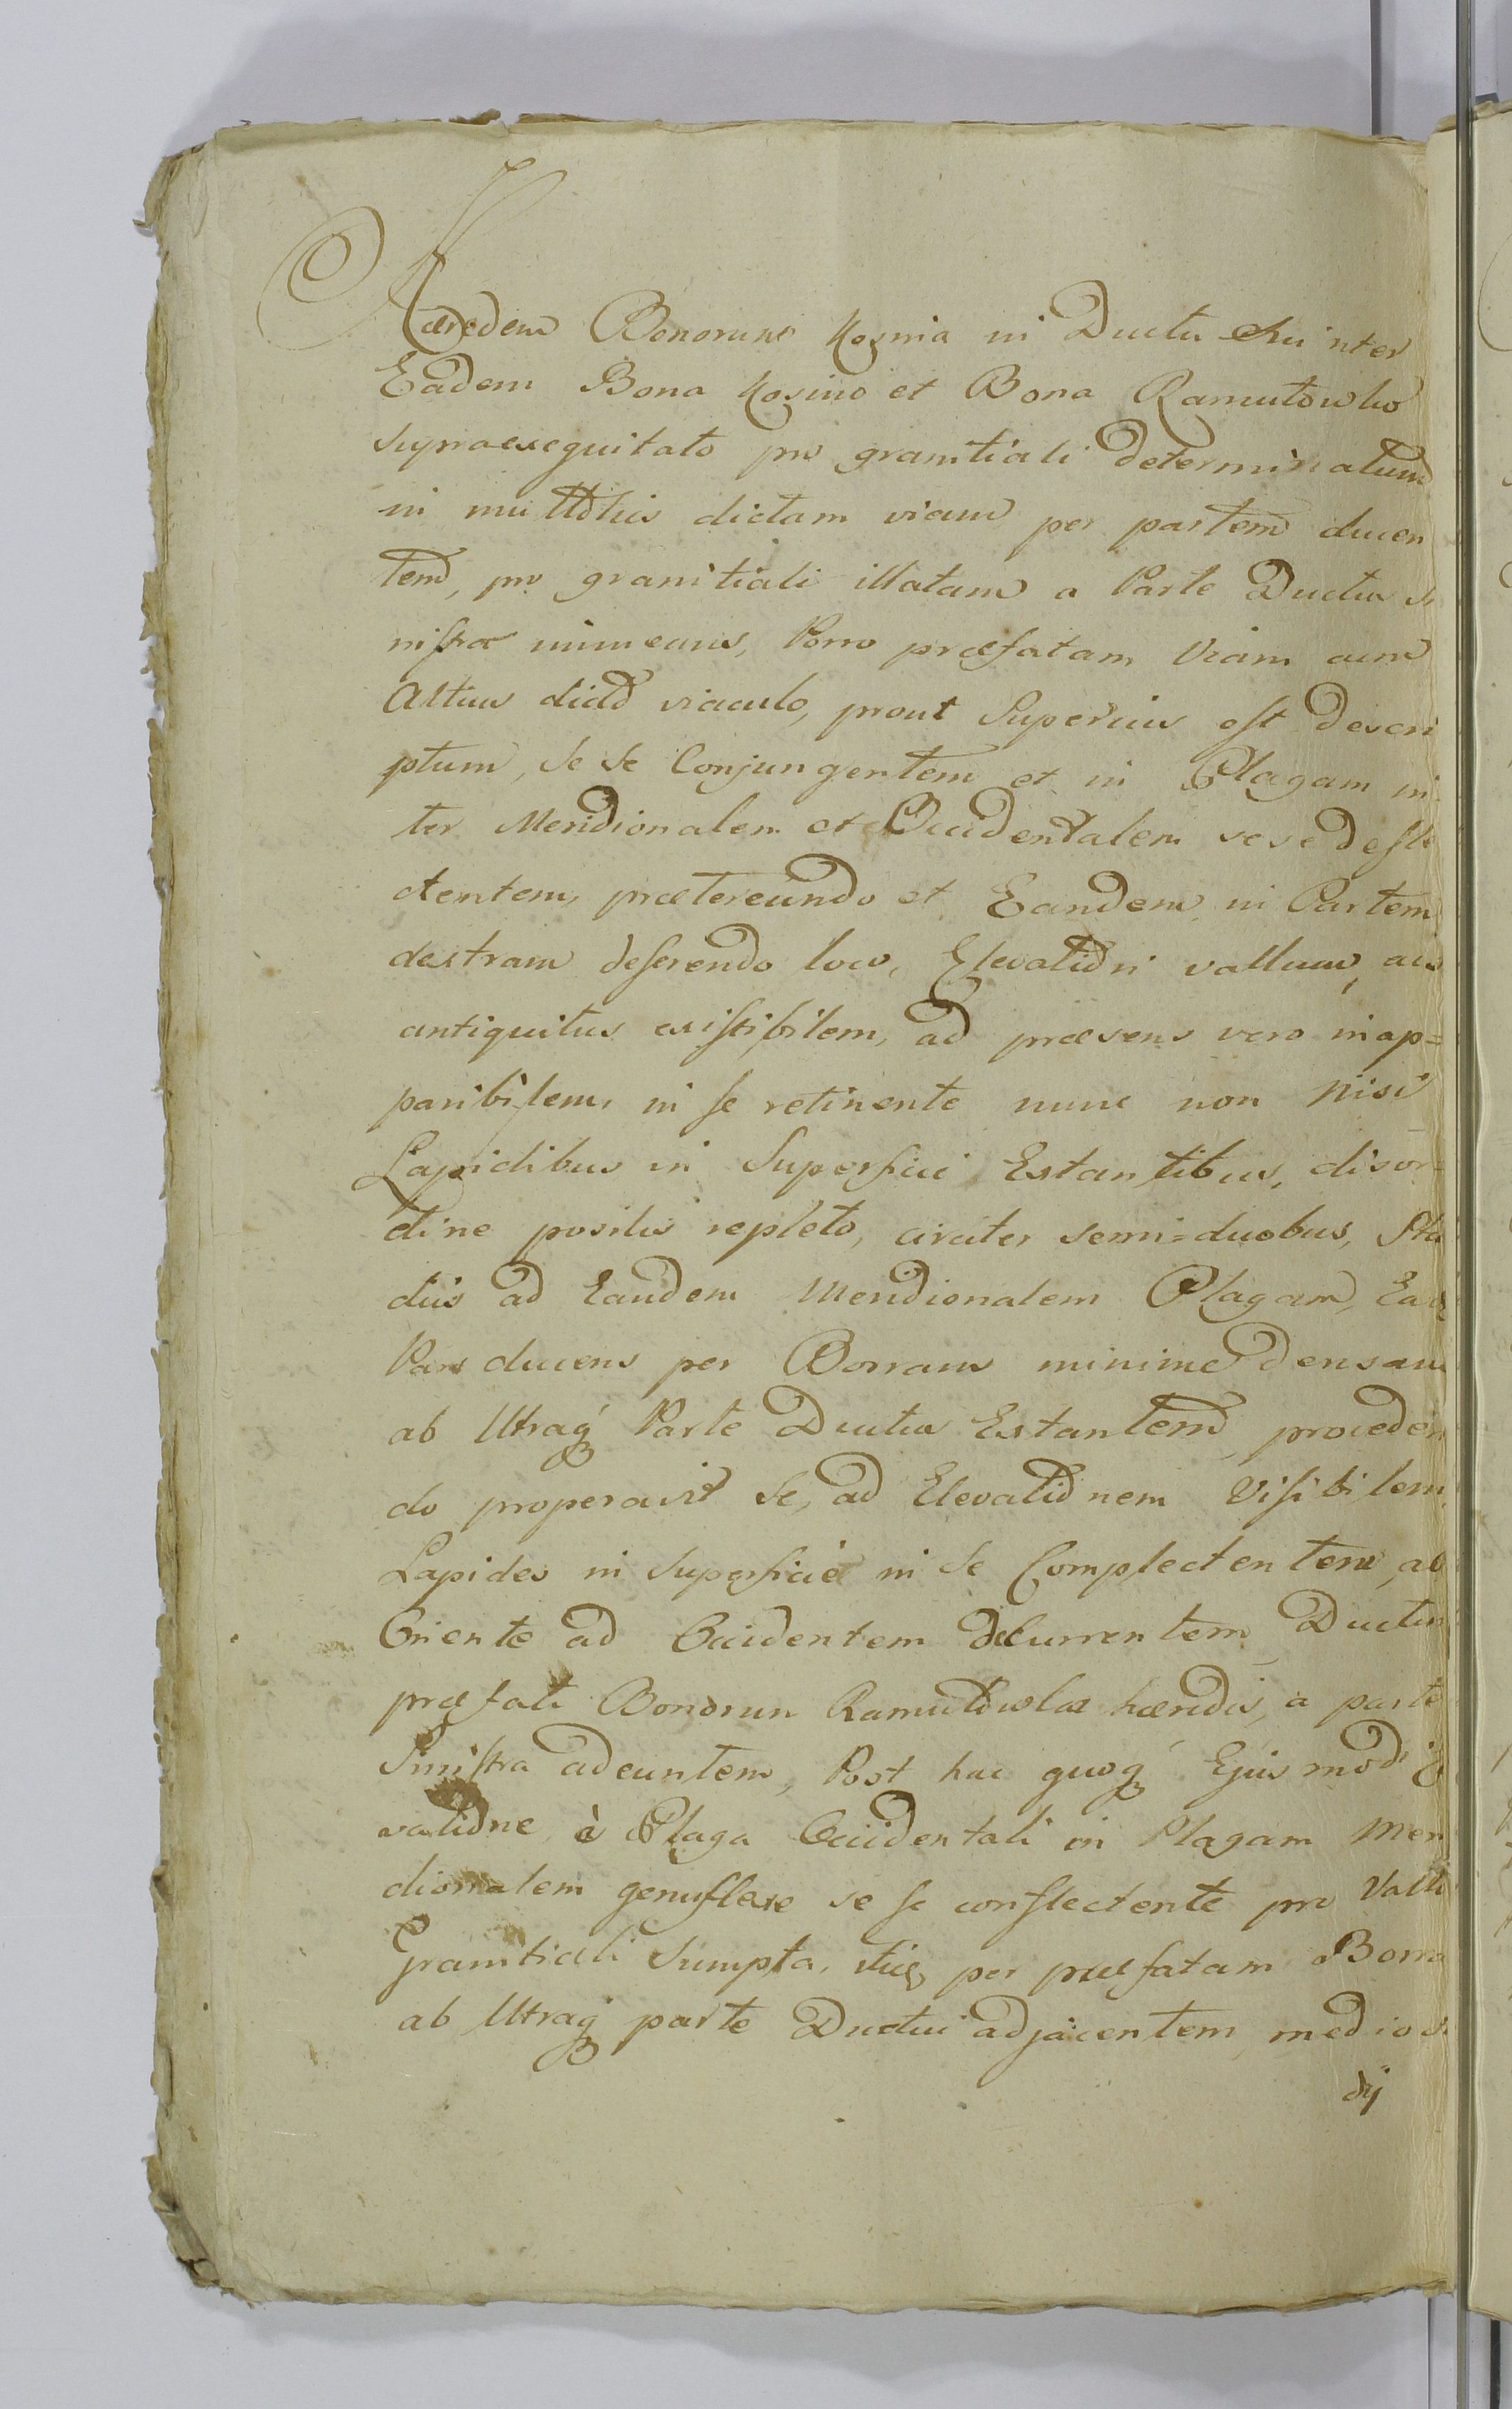 Hæredem Bonorum Kosino in Ductu inter
Eadem Bona Kosino et Bona Ramutowko
supraexequitato pro granitiali determinatum
in dictam viam per partem ducen
tem, pro granitiali illatam a Parte Ductus si
nistra Porro præfatam Viam cum
Altius dicto viaculo, prout Superius est descri
ptum, se se Conjungentem et in Plagam in
ter Meridionalem et Occidentalem sese defle
ctentem, prætereundo et Eandem in Partem
dextram deserendo loco, Elevationi vallum, ac
antiquitus existibilem, ad præsens vero inap=
paribilem, in se retinente nunc non Nisi
Lapidibus in Superficie Extantibus, disor
dine positis repleto, circiter semi=duobus, Sta
diis ad Eandem Meridionalem Plagam,
Pars ducens per Borram minime densam
ab Utraq Parte Ductus Extantem, proceden
do properavit se, ad Elevationem Visibilem,
Lapides in Superficie in se Complectentem, ab
Oriente ad Occidentem decurrentem Ductui
præfati Bonorum Ramutowko hæredis, a parte
Sinistra adeuntem, Post hac quoq Ejus modi
vatione à Plaga Occidentali in Plagam Meri
dionalem genuflexe se se conflectente pro Valli
Granitiali Sumpta, per præfatam Borra
ab Utraq parte Ductui adjacentem,
dij